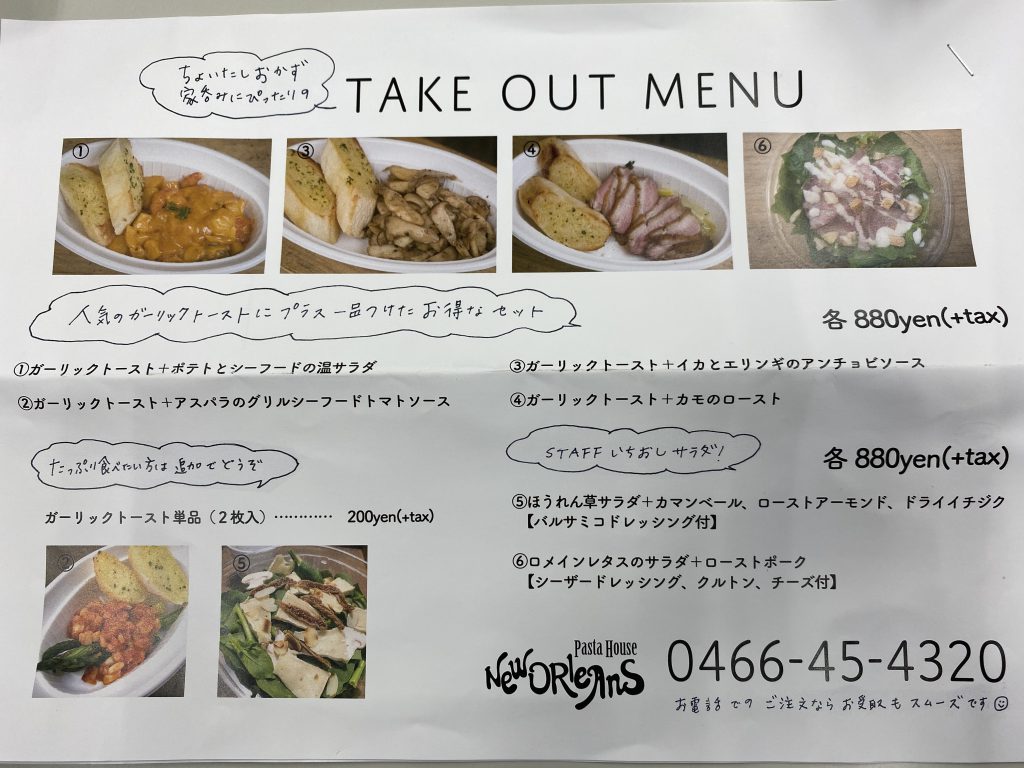 ちょいたしおかず
家呑みにぴったりの
TAKE OUT MENU
①
③
④
⑥
人気のガーリックトーストにプラス一品つけたお得なセット
各 880yen(+tax)
①ガーリックトースト＋ポテトとシーフードの温サラダ
②ガーリックトースト＋アスパラのグリルシーフードトマトソース
③ガーリックトースト＋イカとエリンギのアンチョビソース
④ガーリックトースト＋カモのロースト
たっぷり食べたい方は追加でどうぞ
ガーリックトースト単品（２枚入）………… 200yen(+tax)
②
⑤
STAFFいちおしサラダ！
各 880yen(+tax)
⑤ほうれん草サラダ＋カマンベール、ローストアーモンド、ドライイチジク
【バルサミコドレッシング付】
⑥ロメインレタスのサラダ＋ローストポーク
【シーザードレッシング、クルトン、チーズ付】
Pasta House
New ORleAnS
0466-45-4320
お電話でのご注文ならお受取もスムーズです